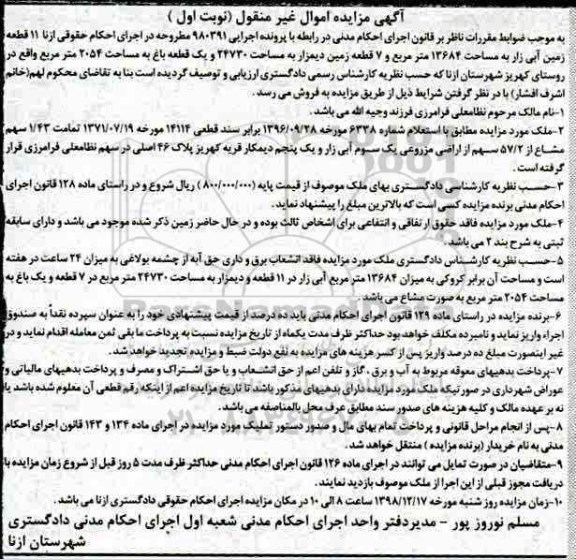 آگهی مزایده اموال غیر منقول (نوبت اول )
به موجب ضوابط مقررات ناظر بر قانون اجرای احکام مدنی در رابطه با پرونده اجرایی ۹۸۰۳۹۱ مطروحه در اجرای احکام حقوقی ازنا ۱۱ قطعه
زمین آبی زار به مساحت ۱۳۶۸۴ متر مربع و ۷ قطعه زمین دیمزار به مساحت ۲۴۷۳۰ و یک قطعه باغ به مساحت ۲۰۵۴ متر مربع واقع در
روستای کهریز شهرستان ازنا که حسب نظریه کارشناس رسمی دادگستری ارزیابی و توصیف گردیده است بنا به تقاضای محکوم لهم(خانم
اشرف افشار) با در نظر گرفتن شرایط ذیل از طریق مزایده به فروش می رسد .
۱-نام مالک مرحوم نظامعلی فرامرزی فرزند وجیه الله می باشد .
۲-ملک مورد مزایده مطابق با استعلام شماره ۶۳۳۸ مورخه ۱۳۹۶/۰۹/۲۸ برابر سند قطعی ۱۴۱۱۴ مورخه ۱۳۷۱/۰۷/۱۹ تمامت ۱/۴۳ سهم
مشاع از ۵۷/۲ سهم از اراضی مزروعی یک سوم آبی زار و یک پنجم دیمکار قریه کهریز پلاک ۴۶ اصلی در سهم نظامعلی فرامرزی قرار
گرفته است .
۳-حسب نظریه کارشناسی دادگستری بهای ملک موصوف از قیمت پایه (۸۰۰/۰۰۰/۰۰۰ ) ریال شروع و در راستای ماده ۱۲۸ قانون اجرای
احکام مدنی برنده مزایده کسی است که بالاترین مبلغ را پیشنهاد نماید.
۴-ملک مورد مزایده فاقد حقوق ارتفاقی و انتفاعی برای اشخاص ثالث بوده و در حال حاضر زمین ذکر شده موجود می باشد و دارای سابقه
ثبتی به شرح بند ۲ می باشد .
۵-حسب نظریه کارشناس دادگستری ملک مورد مزایده فاقد انشعاب برق و داری حق آبه از چشمه بولاغی به میزان ۲۴ ساعت در هفته
است و مساحت آن برابر کروکی به میزان ۱۳۶۸۴ متر مربع آبی زار در ۱۱ قطعه و دیمزار به مساحت ۲۴۷۳۰ متر مربع در ۷ قطعه و یک باغ به
مساحت ۲۰۵۴ متر مربع به صورت مشاع می باشد .
۶-برنده مزایده در راستای ماده ۱۲۹ قانون اجرای احکام مدنی باید ده درصد از قیمت پیشنهادی خود را به عنوان سپرده نقداً به صندوق
اجراء واریز نماید و نامبرده مکلف خواهد بود حداکثر ظرف مدت یکماه از تاریخ مزایده نسبت به پرداخت ما بقی ثمن معامله اقدام نماید و در
غیر اینصورت مبلغ ده درصد واریز پس از کسر هزینه های مزایده به نفع دولت ضبط و مزایده تجدید خواهد شد.
۷-پرداخت بدهیهای معوقه مربوط به آب و برق ، گاز و تلفن اعم از حق انشعاب و یا حق اشتراک و مصرف و پرداخت بدهیهای مالیاتی و
عوارض شهرداری در صورتیکه ملک مورد مزایده دارای بدهیهای مذکور باشد تا تاریخ مزایده اعم از اینکه رقم قطعی آن معلوم شده باشد یا
نه بر عهده مالک و کلیه هزینه های صدور سند مطابق عرف محل بالمناصفه می باشد.
۸-پس از انجام مراحل قانونی و پرداخت تمام بهای مال و صدور دستور تملیک مورد مزایده در اجرای ماده ۱۳۴ و ۱۴۳ قانون اجرای احکام
مدنی به نام خریدار (برنده مزایده ) منتقل خواهد شد.
۹-متقاضیان در صورت تمایل می توانند در اجرای ماده ۱۲۶ قانون اجرای احکام مدنی حداکثر ظرف مدت ۵ روز قبل از شروع زمان مزایده با
دریافت مجوز قبلی از این اجرا از ملک موصوف بازدید نمایند.
۱۰-زمان مزایده روز شنبه مورخه ۱۳۹۸/۱۲/۱۷ ساعت ۸ الی ۱۰ در مکان مزایده اجرای احکام حقوقی دادگستری ازنا می باشد .
مسلم نوروز پور – مدیردفتر واحد اجرای احکام مدنی شعبه اول اجرای احکام مدنی دادگستری
شهرستان ازنا